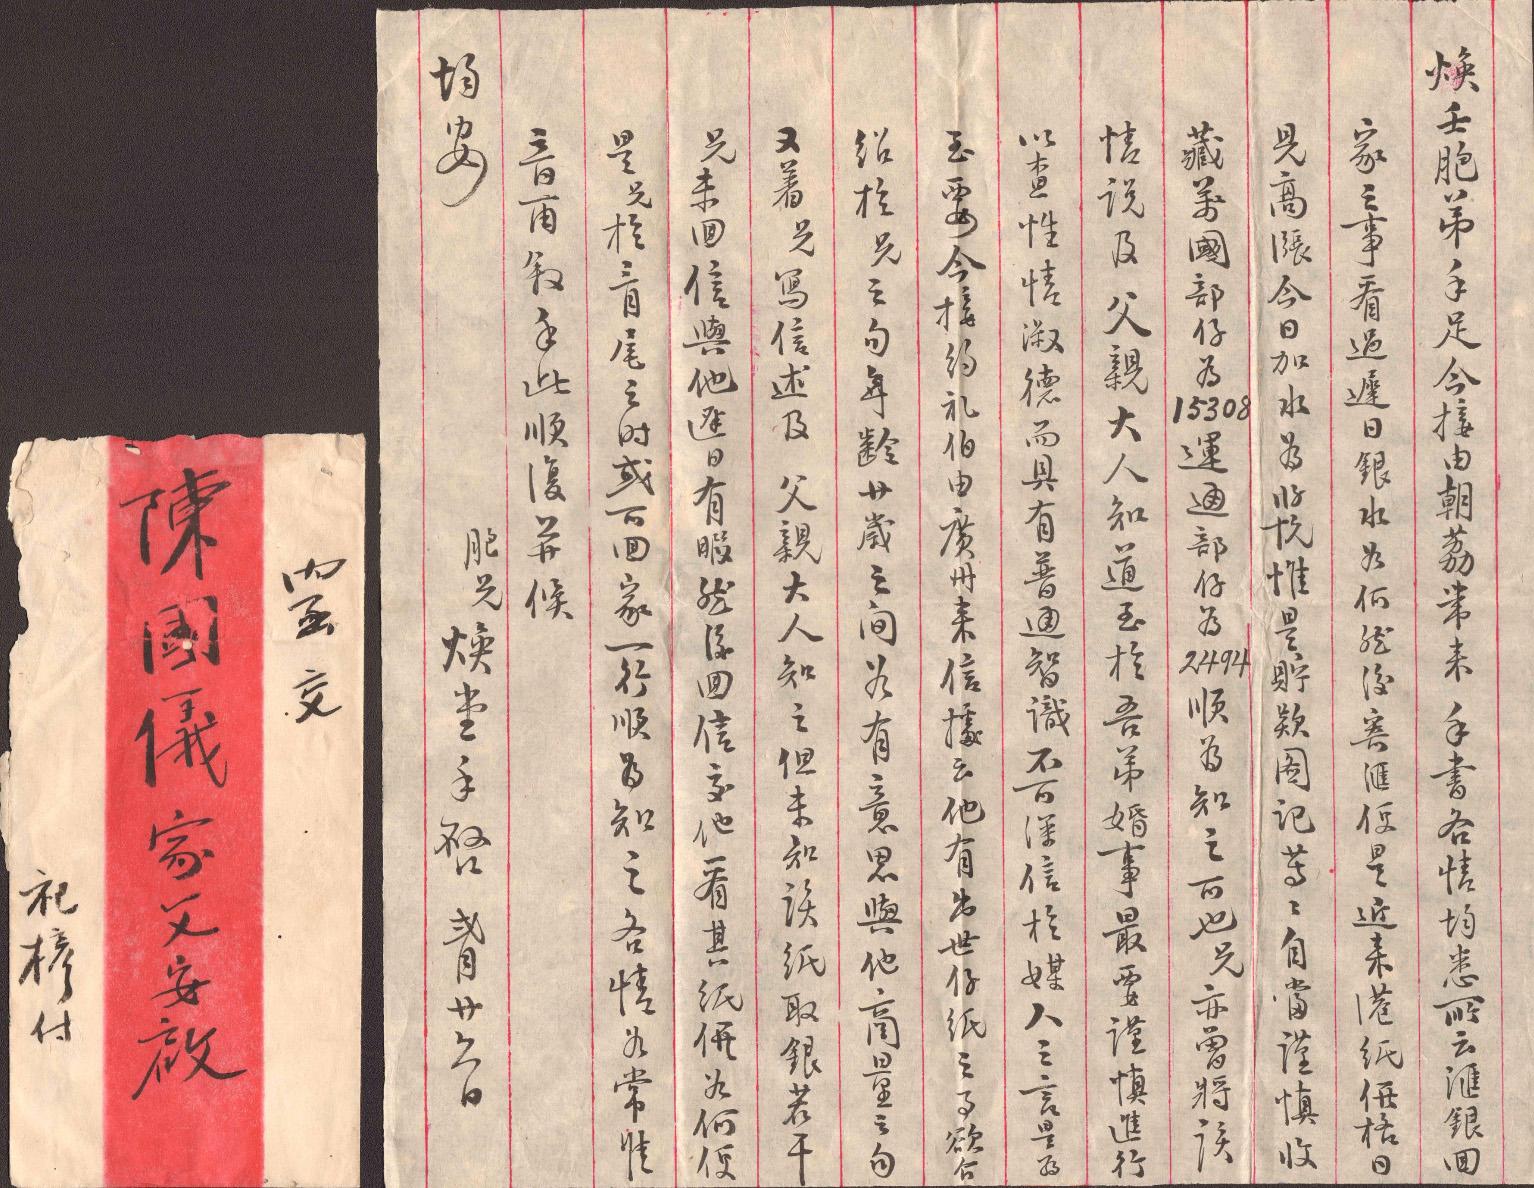 煥壬胞弟手足今接由朝荔帶来手書各情均悉所云滙銀回
家之事看過遲日銀水如何然後寄滙便是近来港紙價格日
見高漲今日加水為
惟是貯欵图记等:自當謹慎收
藏萬國部仔為15308運通部仔為2494順為知之可也兄亦曾將該
情説及父親大人知道至於吾弟婚事最要謹慎進行
以查性情淑德而具有普通智識不可深信於媒人之言是為
至要今接約礼伯由廣州来信據云他有出世仔纸之事欲
绍於兄之句年齡廿歲之间如有意思與他商量之句
又着兄寫信述及父親大人知之但未知該紙取銀若干
兄未回信與他遲日有暇然後回信交他看其紙價如何便
是兄於二月尾之时或可回家一行順為知之各情如常惟
言再敘手此順復并候
均安
胞兄煥堂手啓 弍月廿六日
内函交
陳國儀家父安啟
祀樑付